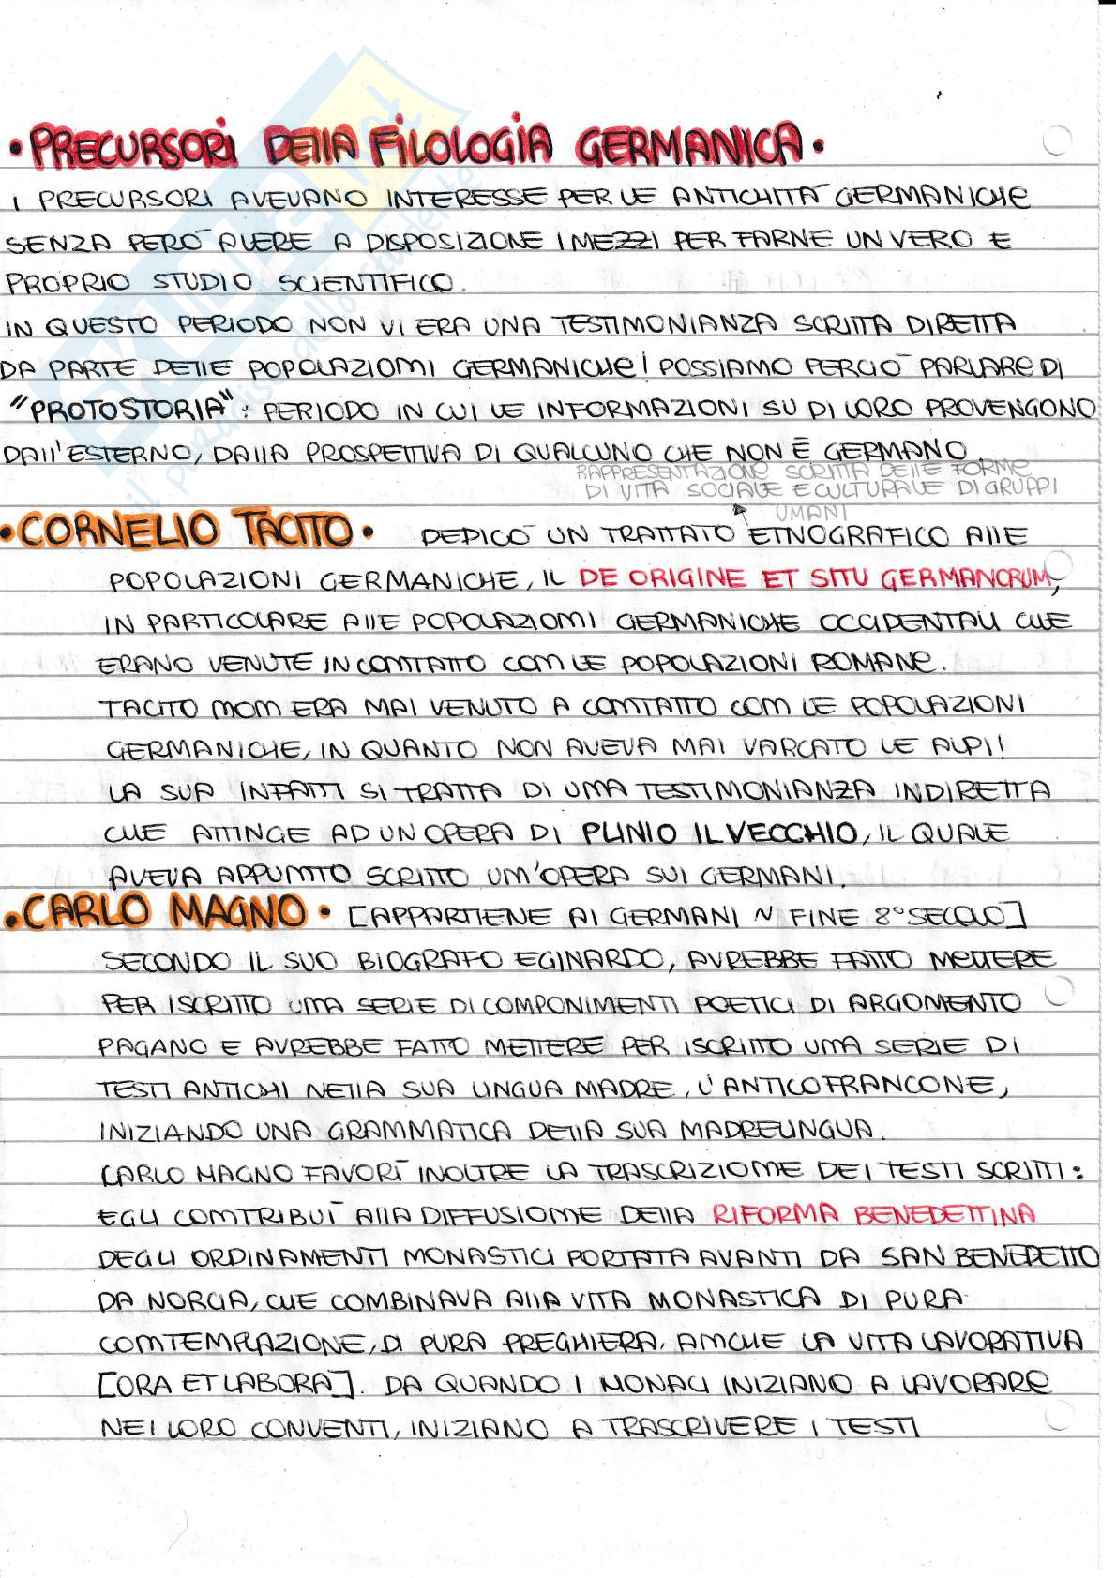 • PRECURSORI DELLA FILOLOGIA GERMANICA •
I PRECURSORI AVEVANO INTERESSE PER LE ANTICHITÀ GERMANICHE
SENZA PERÒ AVERE A DISPOSIZIONE I MEZZI PER FARNE UN VERO E
PROPRIO STUDIO SCIENTIFICO.
IN QUESTO PERIODO NON VI ERA UNA TESTIMONIANZA SCRITTA DIRETTA
DA PARTE DELLE POPOLAZIONI GERMANICHE! POSSIAMO PERCIÒ PARLARE DI
"PROTOSTORIA": PERIODO IN CUI LE INFORMAZIONI SU DI LORO PROVENGONO
DALL'ESTERNO, DALLA PROSPETTIVA DI QUALCUNO CHE NON È GERMANO.
RAPPRESENTAZIONE SCRITTA DELLE FORME
DI VITA SOCIALE E CULTURALE DI GRUPPI
UMANI
• CORNELIO TACITO • DEDICÒ UN TRATTATO ETNOGRAFICO ALLE
POPOLAZIONI GERMANICHE, IL DE ORIGINE ET SITU GERMANORUM,
IN PARTICOLARE ALLE POPOLAZIONI GERMANICHE OCCIDENTALI CHE
ERANO VENUTE IN CONTATTO CON LE POPOLAZIONI ROMANE.
TACITO NON ERA MAI VENUTO A CONTATTO CON LE POPOLAZIONI
GERMANICHE, IN QUANTO NON AVEVA MAI VARCATO LE ALPI!
LA SUA INFATTI SI TRATTA DI UNA TESTIMONIANZA INDIRETTA
CHE ATTINGE AD UN OPERA DI PLINIO IL VECCHIO, IL QUALE
AVEVA APPUNTO SCRITTO UN'OPERA SUI GERMANI.
• CARLO MAGNO • [APPARTIENE AI GERMANI ~ FINE 8° SECOLO]
SECONDO IL SUO BIOGRAFO EGINARDO, AVREBBE FATTO METTERE
PER ISCRITTO UNA SERIE DI COMPONIMENTI POETICI DI ARGOMENTO
PAGANO E AVREBBE FATTO METTERE PER ISCRITTO UNA SERIE DI
TESTI ANTICHI NELLA SUA LINGUA MADRE, L'ANTICOFRANCONE,
INIZIANDO UNA GRAMMATICA DELLA SUA MADRELINGUA.
CARLO MAGNO FAVORÌ INOLTRE LA TRASCRIZIONE DEI TESTI SCRITTI:
EGLI CONTRIBUÌ ALLA DIFFUSIONE DELLA RIFORMA BENEDETTINA
DEGLI ORDINAMENTI MONASTICI PORTATA AVANTI DA SAN BENEDETTO
DA NORCIA, CHE COMBINAVA ALLA VITA MONASTICA DI PURA
CONTEMPLAZIONE, DI PURA PREGHIERA, ANCHE LA VITA LAVORATIVA
[ORA ET LABORA]. DA QUANDO I MONACI INIZIANO A LAVORARE
NEI LORO CONVENTI, INIZIANO A TRASCRIVERE I TESTI